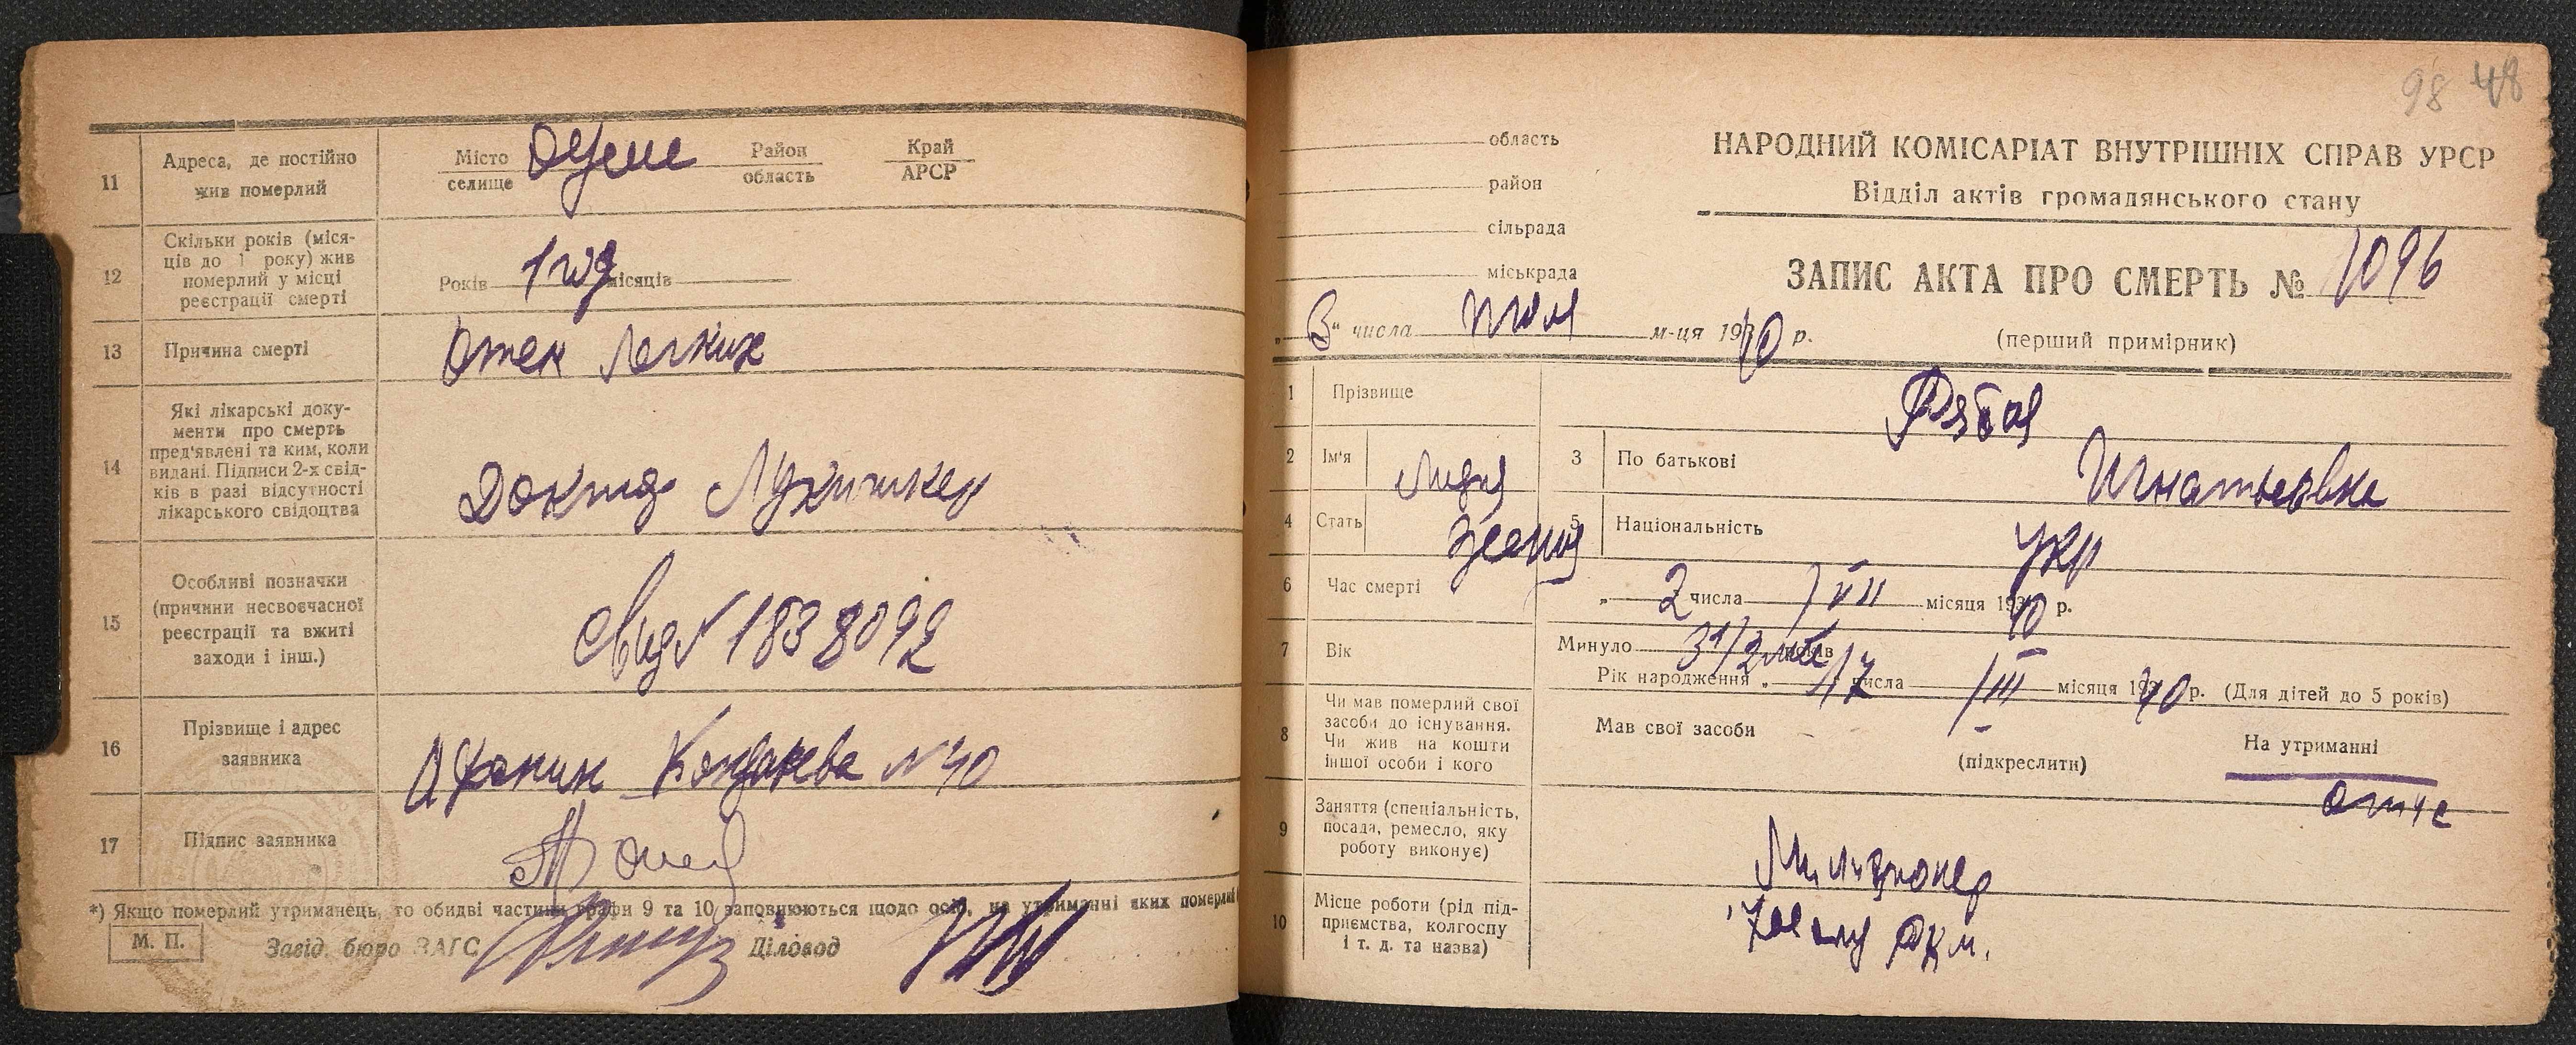 11
Адреса, де постійно
жив померлий
Місто
селище
Одесс
Район
область
Край
АРСР
12
Скільки років (міся-
ців до 1 року) жив
померлий у місці
реєстрації смерті
Років 1 год місяців
13
Причина смерті
Отек легких
14
Які лікарські доку-
менти про смерть
пред'явлені та ким, коли
видані. Підписи 2-х свід-
ків в разі відсутності
лікарського свідоцтва
Доктор
15
Особливі позначки
(причини несвоєчасної
реєстрації та вжиті
заходи і інш.)
Свид № 1838092
16
Прізвище і адрес
заявника
№ 40
17
Підпис заявника
*) Якщо померлий утриманець, то обидві частини графи 9 та 10 заповнюються щодо осіб, на утриманні яких померлий
М. П.
Завід. бюро ЗАГС
Діловод
98 48
область
район
сільрада
міськрада
НАРОДНИЙ КОМІСАРІАТ ВНУТРІШНІХ СПРАВ УРСР
Відділ актів громадянського стану
ЗАПИС АКТА ПРО СМЕРТЬ № 1096
(перший примірник)
„3“ числа июл м-ця 1940 р.
1
Прізвище
Рябая
2
Ім'я
Лидия
3
По батькові
Игнатьевна
4
Стать
женщ
5
Національність
укр
6
Час смерті
„ 2 числа VII місяця 1940 р.
7
Вік
Минуло 3 1/2 мес років
Рік народження „ 17 числа III місяця 1940 р. (Для дітей до 5 років)
8
Чи мав померлий свої
засоби до існування.
Чи жив на кошти
іншої особи і кого
Мав свої засоби
(підкреслити)
На утриманні
отце
9
Заняття (спеціальність,
посада, ремесло, яку
роботу виконує)
Милиционер
10
Місце роботи (рід під-
приємства, колгоспу
і т. д. та назва)
РКМ.